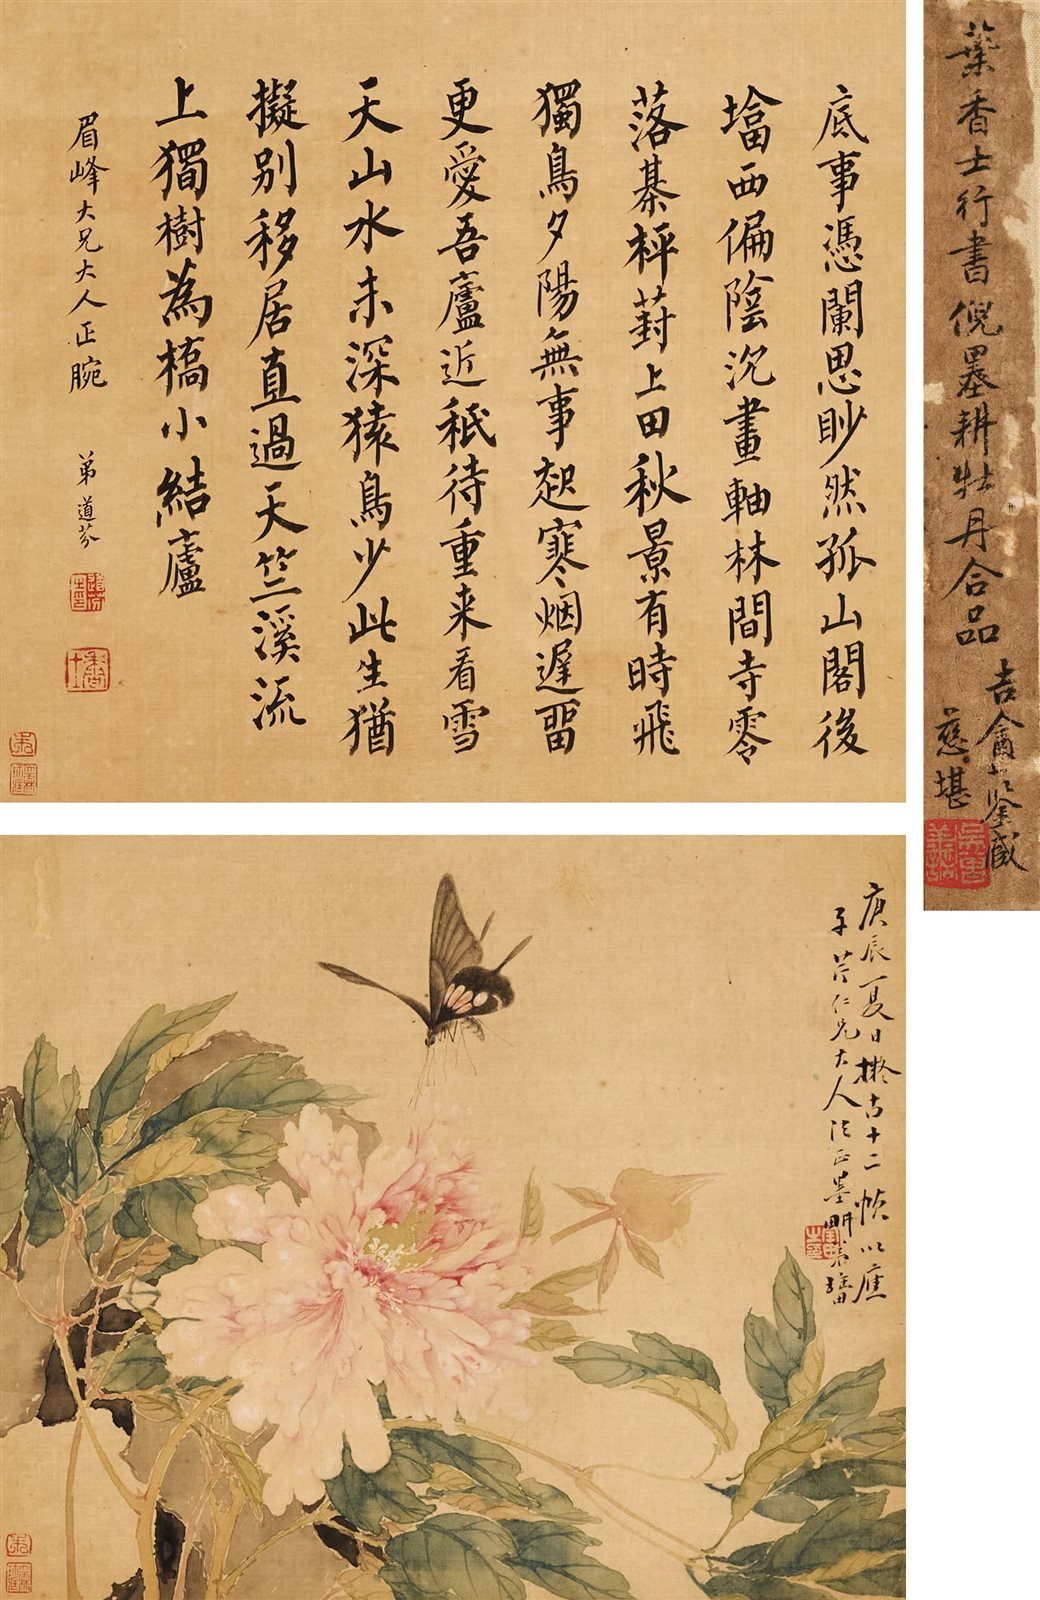 底事憑闌思眇然孤山閣後
墖西偏陰沉畫軸林間寺零
落棊枰葑上田秋景有時飛
獨鳥夕陽無事起寒烟遲留
更愛吾廬近秖待重来看雪
天山水未深猿鳥少此生猶
擬別移居直過天竺溪流
上獨樹為橋小結廬
眉峰大兄大人正腕
弟道芬
香士
葉香士行書倪墨耕牡丹合品
吉盦鉴藏
慈堪
庚辰夏日橅古十二帧以應
子芹仁兄大人法正墨畊弟璠